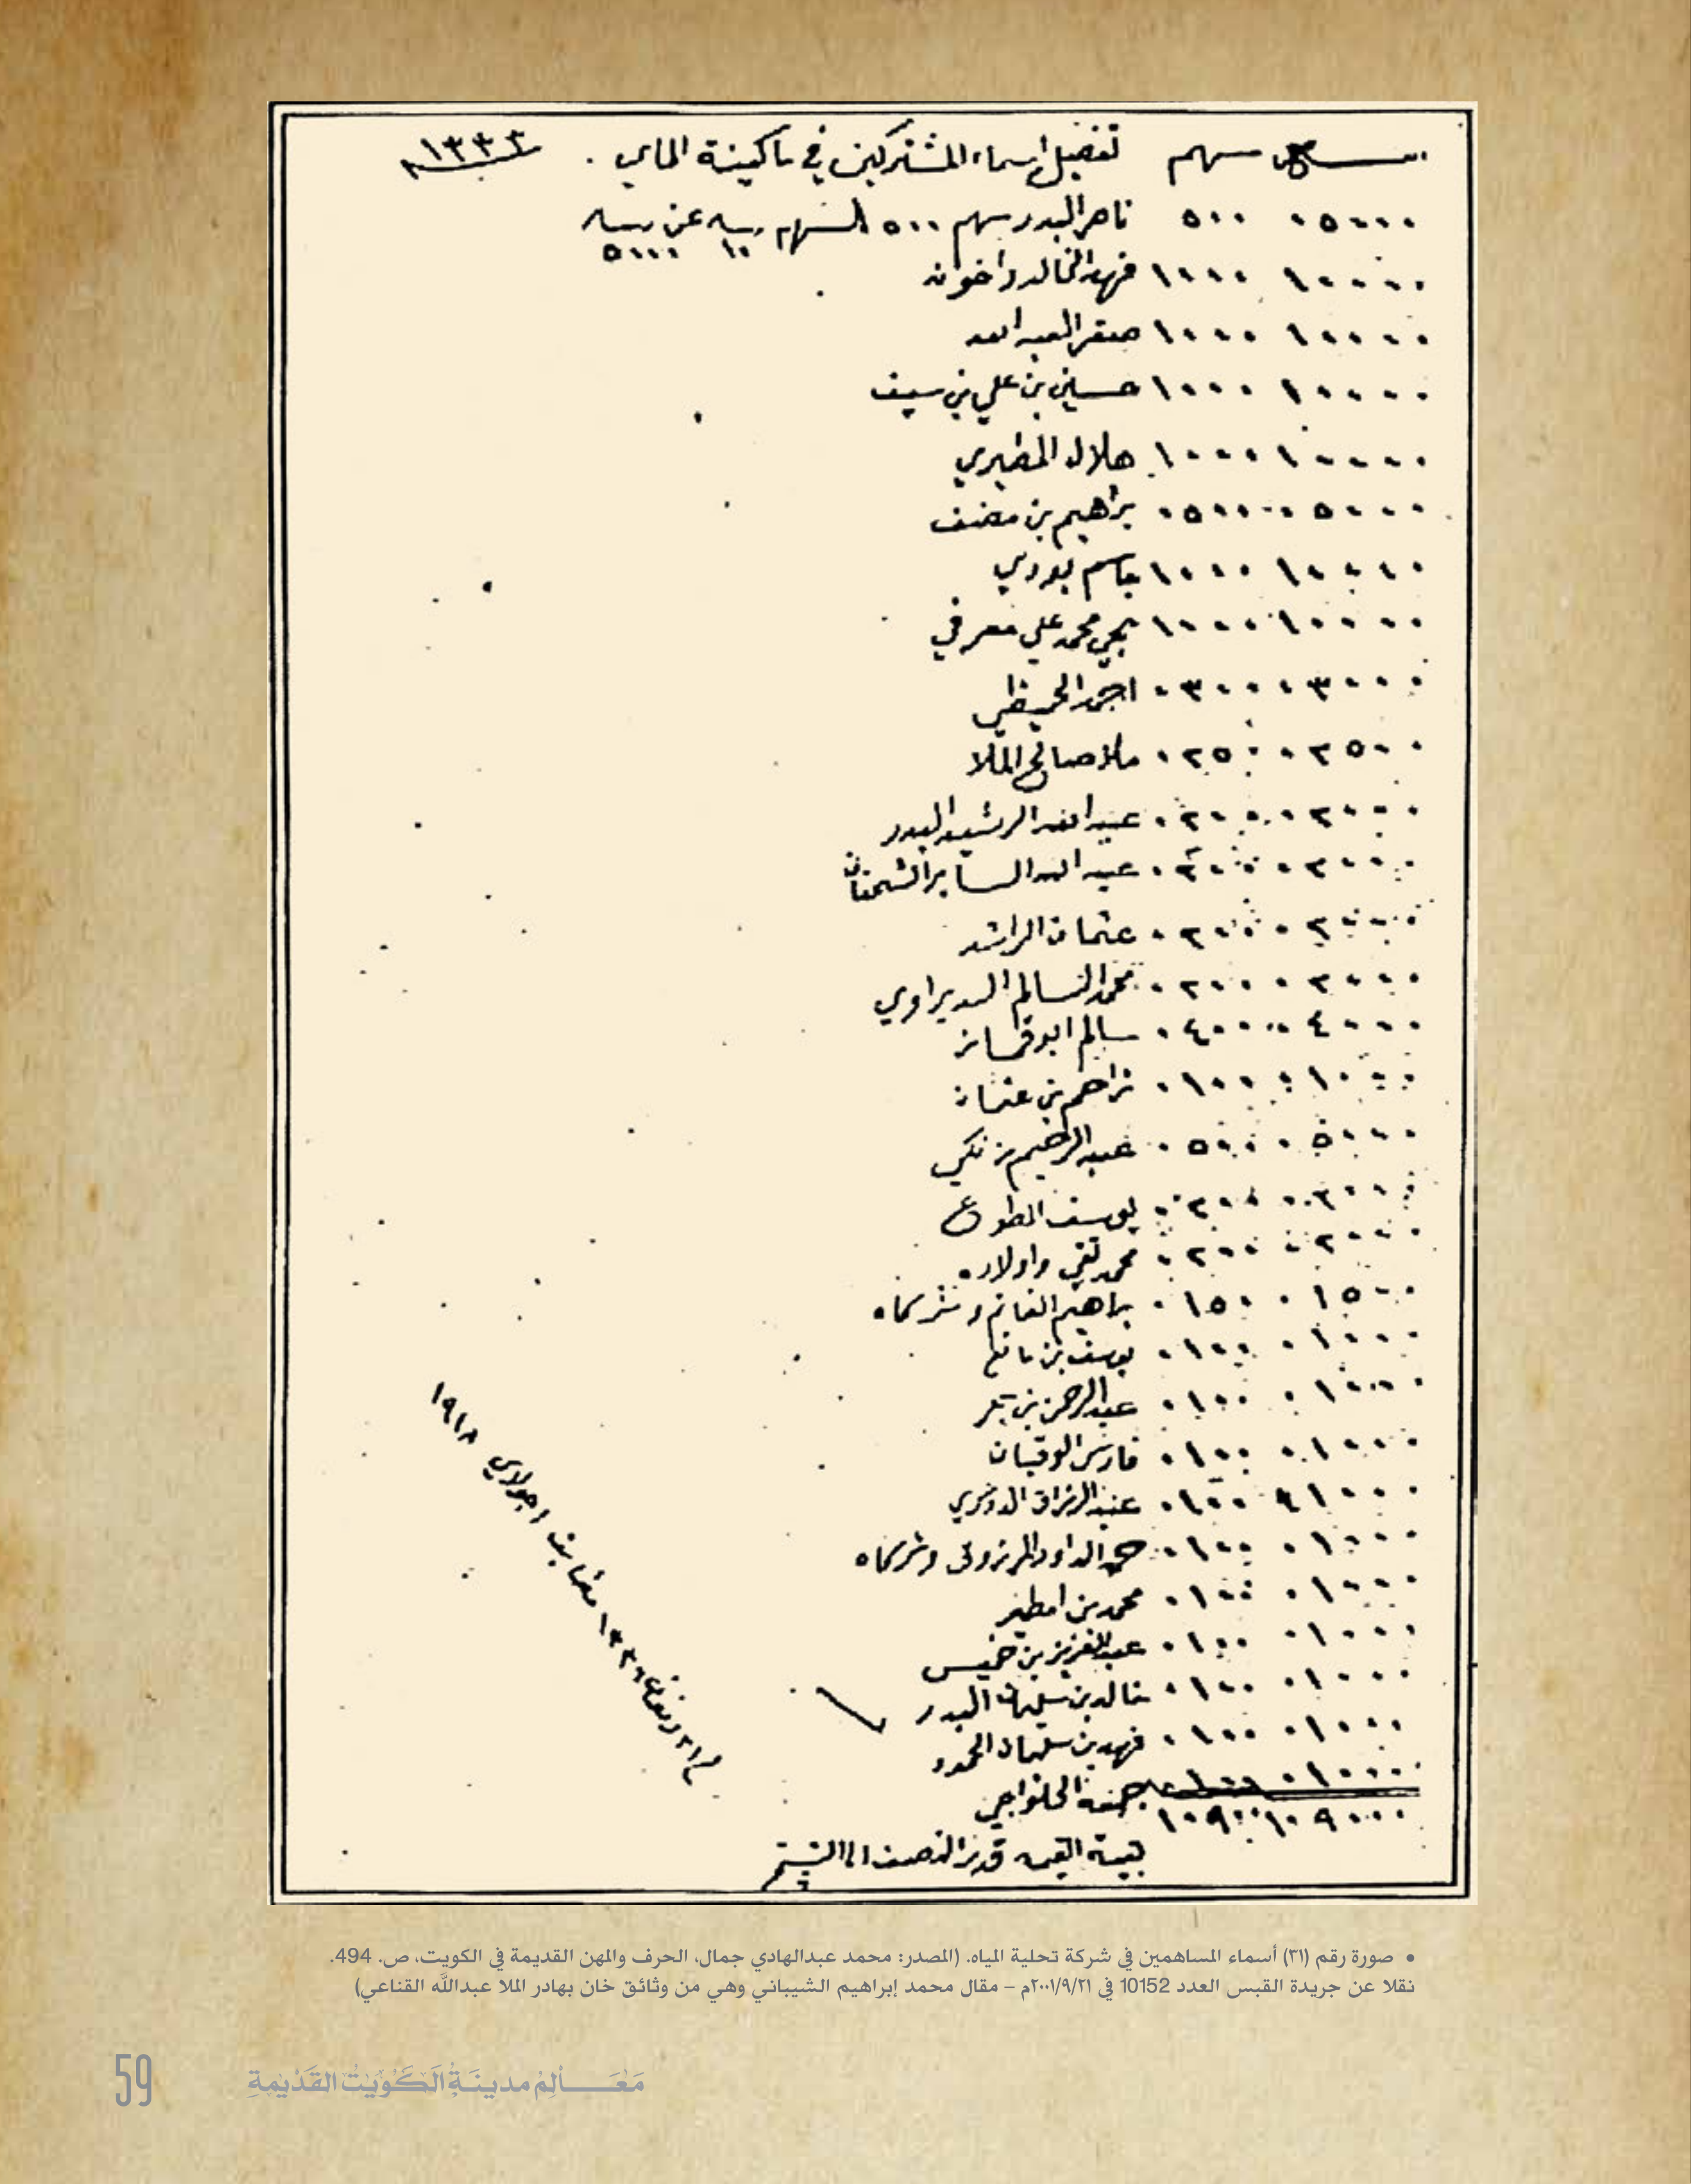 سهم تفصيل اسماء المشتركين في ماكينة الماي . ١٣٣٣
٠٥٠٠٠ ٥٠٠ ناصر البدر سهم ٥٠٠ السهم ربيه عن ربيه
١٠ ٥٠٠٠
١٠٠٠٠ ١٠٠٠ فهد الخالد واخوانه
١٠٠٠٠ ١٠٠٠ صقر العبد الله
١٠٠٠٠ ١٠٠٠ حسين بن علي بن سيف
١٠٠٠٠ ١٠٠٠ هلال المطيري
٠٥٠٠٠ ٠٥٠٠ براهيم بن مضف
١٠٠٠٠ ١٠٠٠ جاسم بودي
١٠٠٠٠ ١٠٠٠ محمد علي معرفي
٠٣٠٠٠ ٠٣٠٠ احمد الحميظي
٠٢٥٠٠ ٠٢٥٠ ملا صالح الملا
٠٢٠٠٠ ٠٢٠٠ عبد الله الرشيد البدر
٠٢٠٠٠ ٠٢٠٠ عبد الله الساير الشحنان
٠٢٠٠٠ ٠٢٠٠ عثمان الراشد
٠٢٠٠٠ ٠٢٠٠ محمد السالم السديراوي
٠٤٠٠٠ ٠٤٠٠ سالم ابوقماز
٠١٠٠٠ ٠١٠٠ براهيم بن عثمان
٠٥٠٠٠ ٠٥٠٠ عبد الرحيم زنكي
٠٢٠٠٠ ٠٢٠٠ يوسف المطوع
٠٢٠٠٠ ٠٢٠٠ محمد تقي واولاده
٠١٥٠٠ ٠١٥٠ براهيم الغانم وشركاه
٠١٠٠٠ ٠١٠٠ يوسف بن مانع
٠١٠٠٠ ٠١٠٠ عبد الرحمن بن بحر
٠١٠٠٠ ٠١٠٠ فارس الوقيان
٠١٠٠٠ ٠١٠٠ عبد الرزاق الدوسري
٠١٠٠٠ ٠١٠٠ حمد الداود المرزوق وشركاه
٠١٠٠٠ ٠١٠٠ محمد بن امطير
٠١٠٠٠ ٠١٠٠ عبد العزيز بن خميس
٠١٠٠٠ ٠١٠٠ خالد بن سليمان البدر
٠١٠٠٠ ٠١٠٠ فهد بن سليمان الحمود
٠١٠٠٠ ٠١٠٠ جمعه الحلواجي
١٠٩٠٠٠ ١٠٩٠٠
بقية القيمه قدر النصف الى
٢١ رمضان ١٣٣٦ مطابق ١ جولاي ١٩١٨
• صورة رقم (٣١) أسماء المساهمين في شركة تحلية المياه. (المصدر: محمد عبدالهادي جمال، الحرف والمهن القديمة في الكويت، ص. 494.
نقلا عن جريدة القبس العدد 10152 في ٢٠٠١/٩/٢١م – مقال محمد إبراهيم الشيباني وهي من وثائق خان بهادر الملا عبدالله القناعي)
مَعَالِمُ مدينَةِ الكُوَيتْ القَدْيمةِ
59